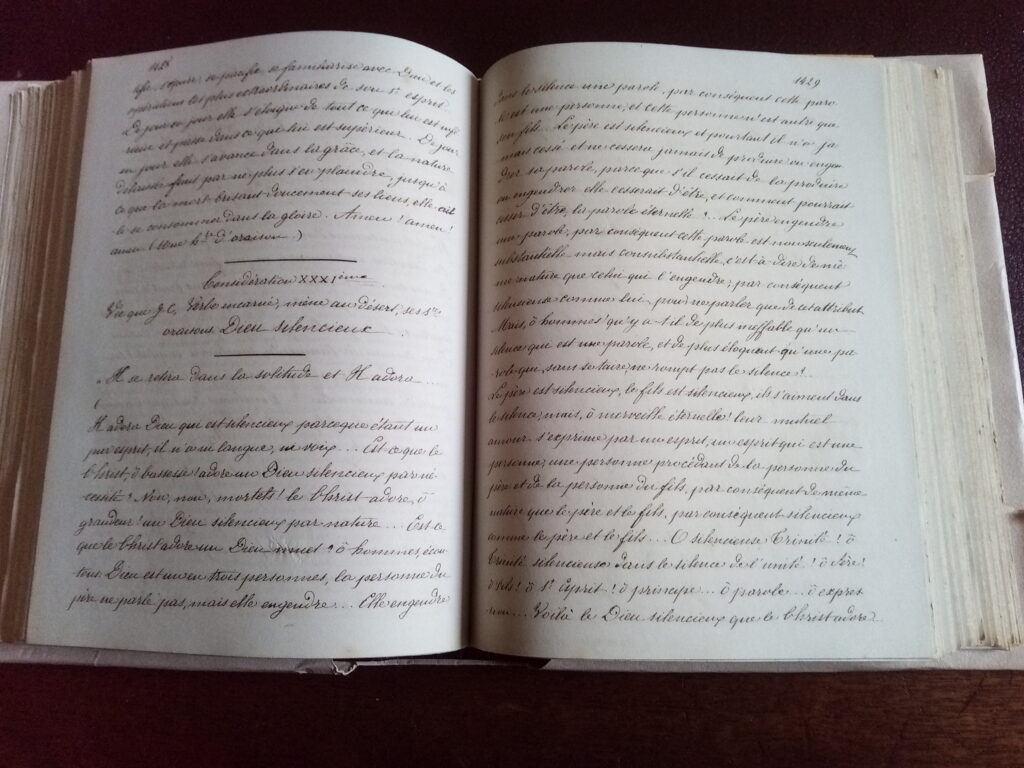 1428
se familiarise avec Dieu et les
opérations les plus extraordinaires de son St esprit.
De jour en jour elle s'éloigne de tout ce que lui est infé
rieur et passe dans ce qui lui est supérieur. De jour
en jour elle s'avance dans la grâce, et la nature
détruite finit par ne plus s'en plaindre, jusqu'à
ce que la mort brisant doucement ses liens, elle ail
le se consommer dans la gloire. Amen! amen!
amen! d'oraison.)
Considération XXXIème
Vie que J.C, Verbe incarné, mène au désert, ses stes
oraisons. Dieu silencieux.
Il se retira dans la solitude et Il adora...
Il adora Dieu qui est silencieux parceque étant un
pur esprit, il n'a ni langue, ni voix... Est-ce que le
Christ, ô bassesse! adore un Dieu silencieux par né-
cessité? Non, non, mortels! le Christ adore, ô
grandeur! un Dieu silencieux par nature... Est-ce
que le Christ adore un Dieu muet? ô hommes, écou-
tons. Dieu est un en trois personnes, la personne du
père ne parle pas, mais elle engendre... Elle engendre
1429
dans le silence une parole, par conséquent cette paro
le est une personne, et cette personne n'est autre que
son fils... Le père est silencieux et pourtant il n'a ja
mais cessé et ne cessera jamais de produire ou engen
drer sa parole, parce que s'il cessait de la produire
ou engendrer elle cesserait d'être, et comment pourrait
cesser d'être, la parole éternelle?.. Le père engendre
une parole, par conséquent cette parole est non seulement
substantielle mais consubstantielle, c'est à dire de mê
me nature que celui qui l'engendre; par conséquent
silencieuse comme lui, pour ne parler que de cet attribut.
Mais, ô hommes! qu'y a-t-il de plus ineffable qu'un
silence qui est une parole, et de plus éloquent qu'une pa
role que, sans se taire, ne rompt pas le silence?..
Le père est silencieux, le fils est silencieux, ils s'aiment dans
le silence; mais, ô merveille éternelle! leur mutuel
amour s'exprime par un esprit, un esprit qui est une
personne, une personne procédant de la personne du
père et de la personne du fils, par conséquent de même
nature que le père et le fils, par conséquent silencieux
comme le père et le fils... O silencieuse Trinité! ô
Trinité silencieuse dans le silence de l'unité! ô Père!
ô Fils! ô St Esprit! ô principe... ô parole... ô expres
sion... Voilà le Dieu silencieux que le Christ adore